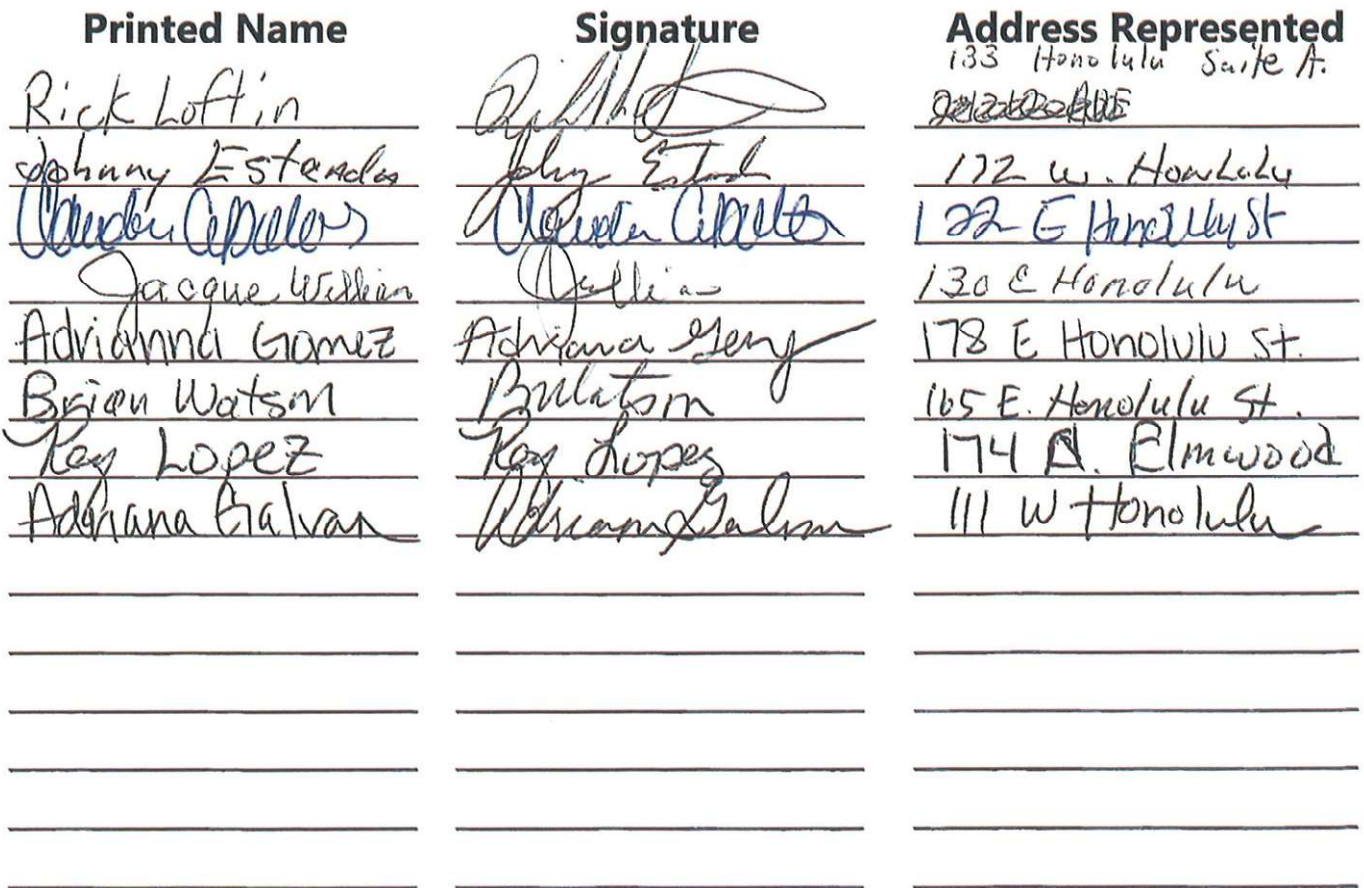 Printed Name Signature Address Represented
133 Honolulu Suite A.
Rick Loftin
Johnny Estrada Johnny 172 W. Honolulu
Claudia Claudia 122 E Honolulu St
Jacque William 130 E Honolulu
Adrianna Gomez Adriana 178 E Honolulu St.
Brian Watson BWatson 165 E. Honolulu St.
Rey Lopez Rey Lopez 174 N. Elmwood
Adriana Galvan Adriana Galvan 111 W Honolulu